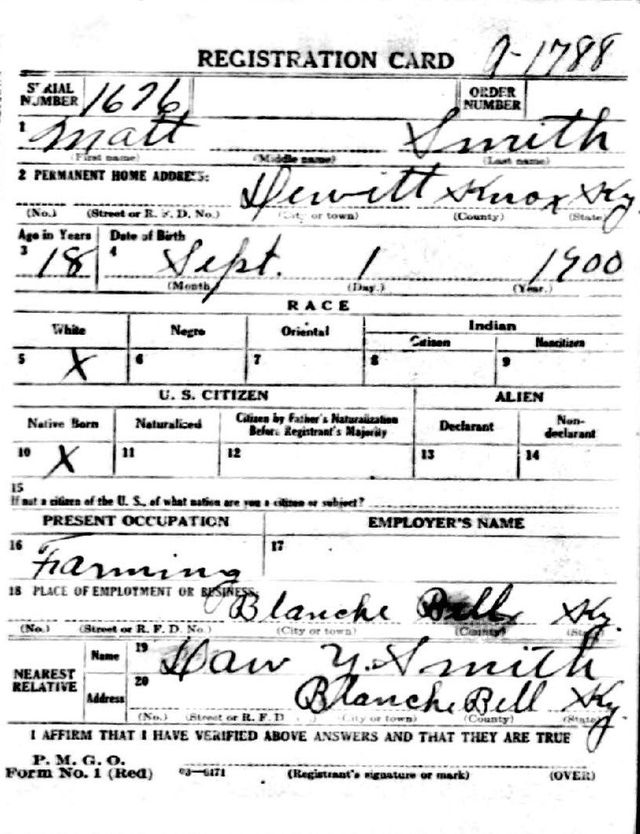 REGISTRATION CARD 9-1788
SERIAL NUMBER 1676 ORDER NUMBER
1 Matt Smith
(First name) (Middle name) (Last name)
2 PERMANENT HOME ADDRESS: Dewitt Knox Ky.
(No.) (Street or R. F. D. No.) (City or town) (County) (State)
Age in Years Date of Birth
3 18 4 Sept. 1 1900
(Month) (Day.) (Year.)
RACE
White Negro Oriental Indian
Citizen Noncitizen
5 X 6 7 8 9
U. S. CITIZEN ALIEN
Native Born Naturalized Citizen by Father's Naturalization Before Registrant's Majority Declarant Non-declarant
10 X 11 12 13 14
15
If not a citizen of the U. S., of what nation are you a citizen or subject?
PRESENT OCCUPATION EMPLOYER'S NAME
16 Farming 17
18 PLACE OF EMPLOYMENT OR BUSINESS: Blanche Bell Ky.
(No.) (Street or R. F. D. No.) (City or town) (County) (State)
NEAREST RELATIVE Name 19 Y. Smith
Address 20 Blanche Bell Ky
(No.) (Street or R. F. D (City or town) (County) (State)
I AFFIRM THAT I HAVE VERIFIED ABOVE ANSWERS AND THAT THEY ARE TRUE
P. M. G. O.
Form No. 1 (Red) 03—6171 (Registrant's signature or mark) (OVER)